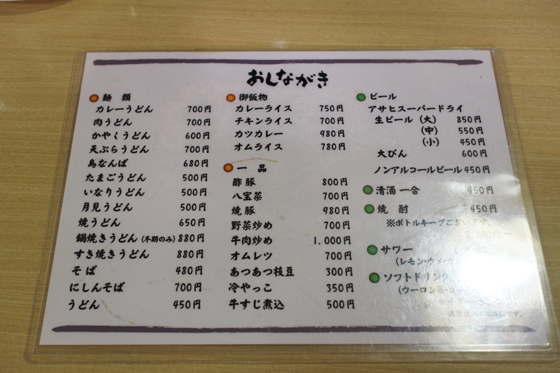 おしながき
麺類
カレーうどん 700円
肉うどん 700円
かやくうどん 600円
天ぷらうどん 700円
鳥なんば 680円
たまごうどん 500円
いなりうどん 500円
月見うどん 500円
焼うどん 650円
鍋焼きうどん(冬期のみ) 880円
すき焼きうどん 880円
そば 480円
にしんそば 700円
うどん 450円
御飯物
カレーライス 750円
チキンライス 700円
カツカレー 980円
オムライス 780円
一品
酢豚 800円
八宝菜 700円
焼豚 980円
野菜炒め 700円
牛肉炒め 1,000円
オムレツ 700円
あつあつ枝豆 300円
冷やっこ 350円
牛すじ煮込 500円
ビール
アサヒスーパードライ
生ビール(大) 850円
(中) 550円
(小) 450円
大びん 600円
ノンアルコールビール 450円
清酒 一合 450円
焼酎 450円
※ボトルキープ
サワー
(レモン・ウメ
ソフトドリンク
(ウーロン茶